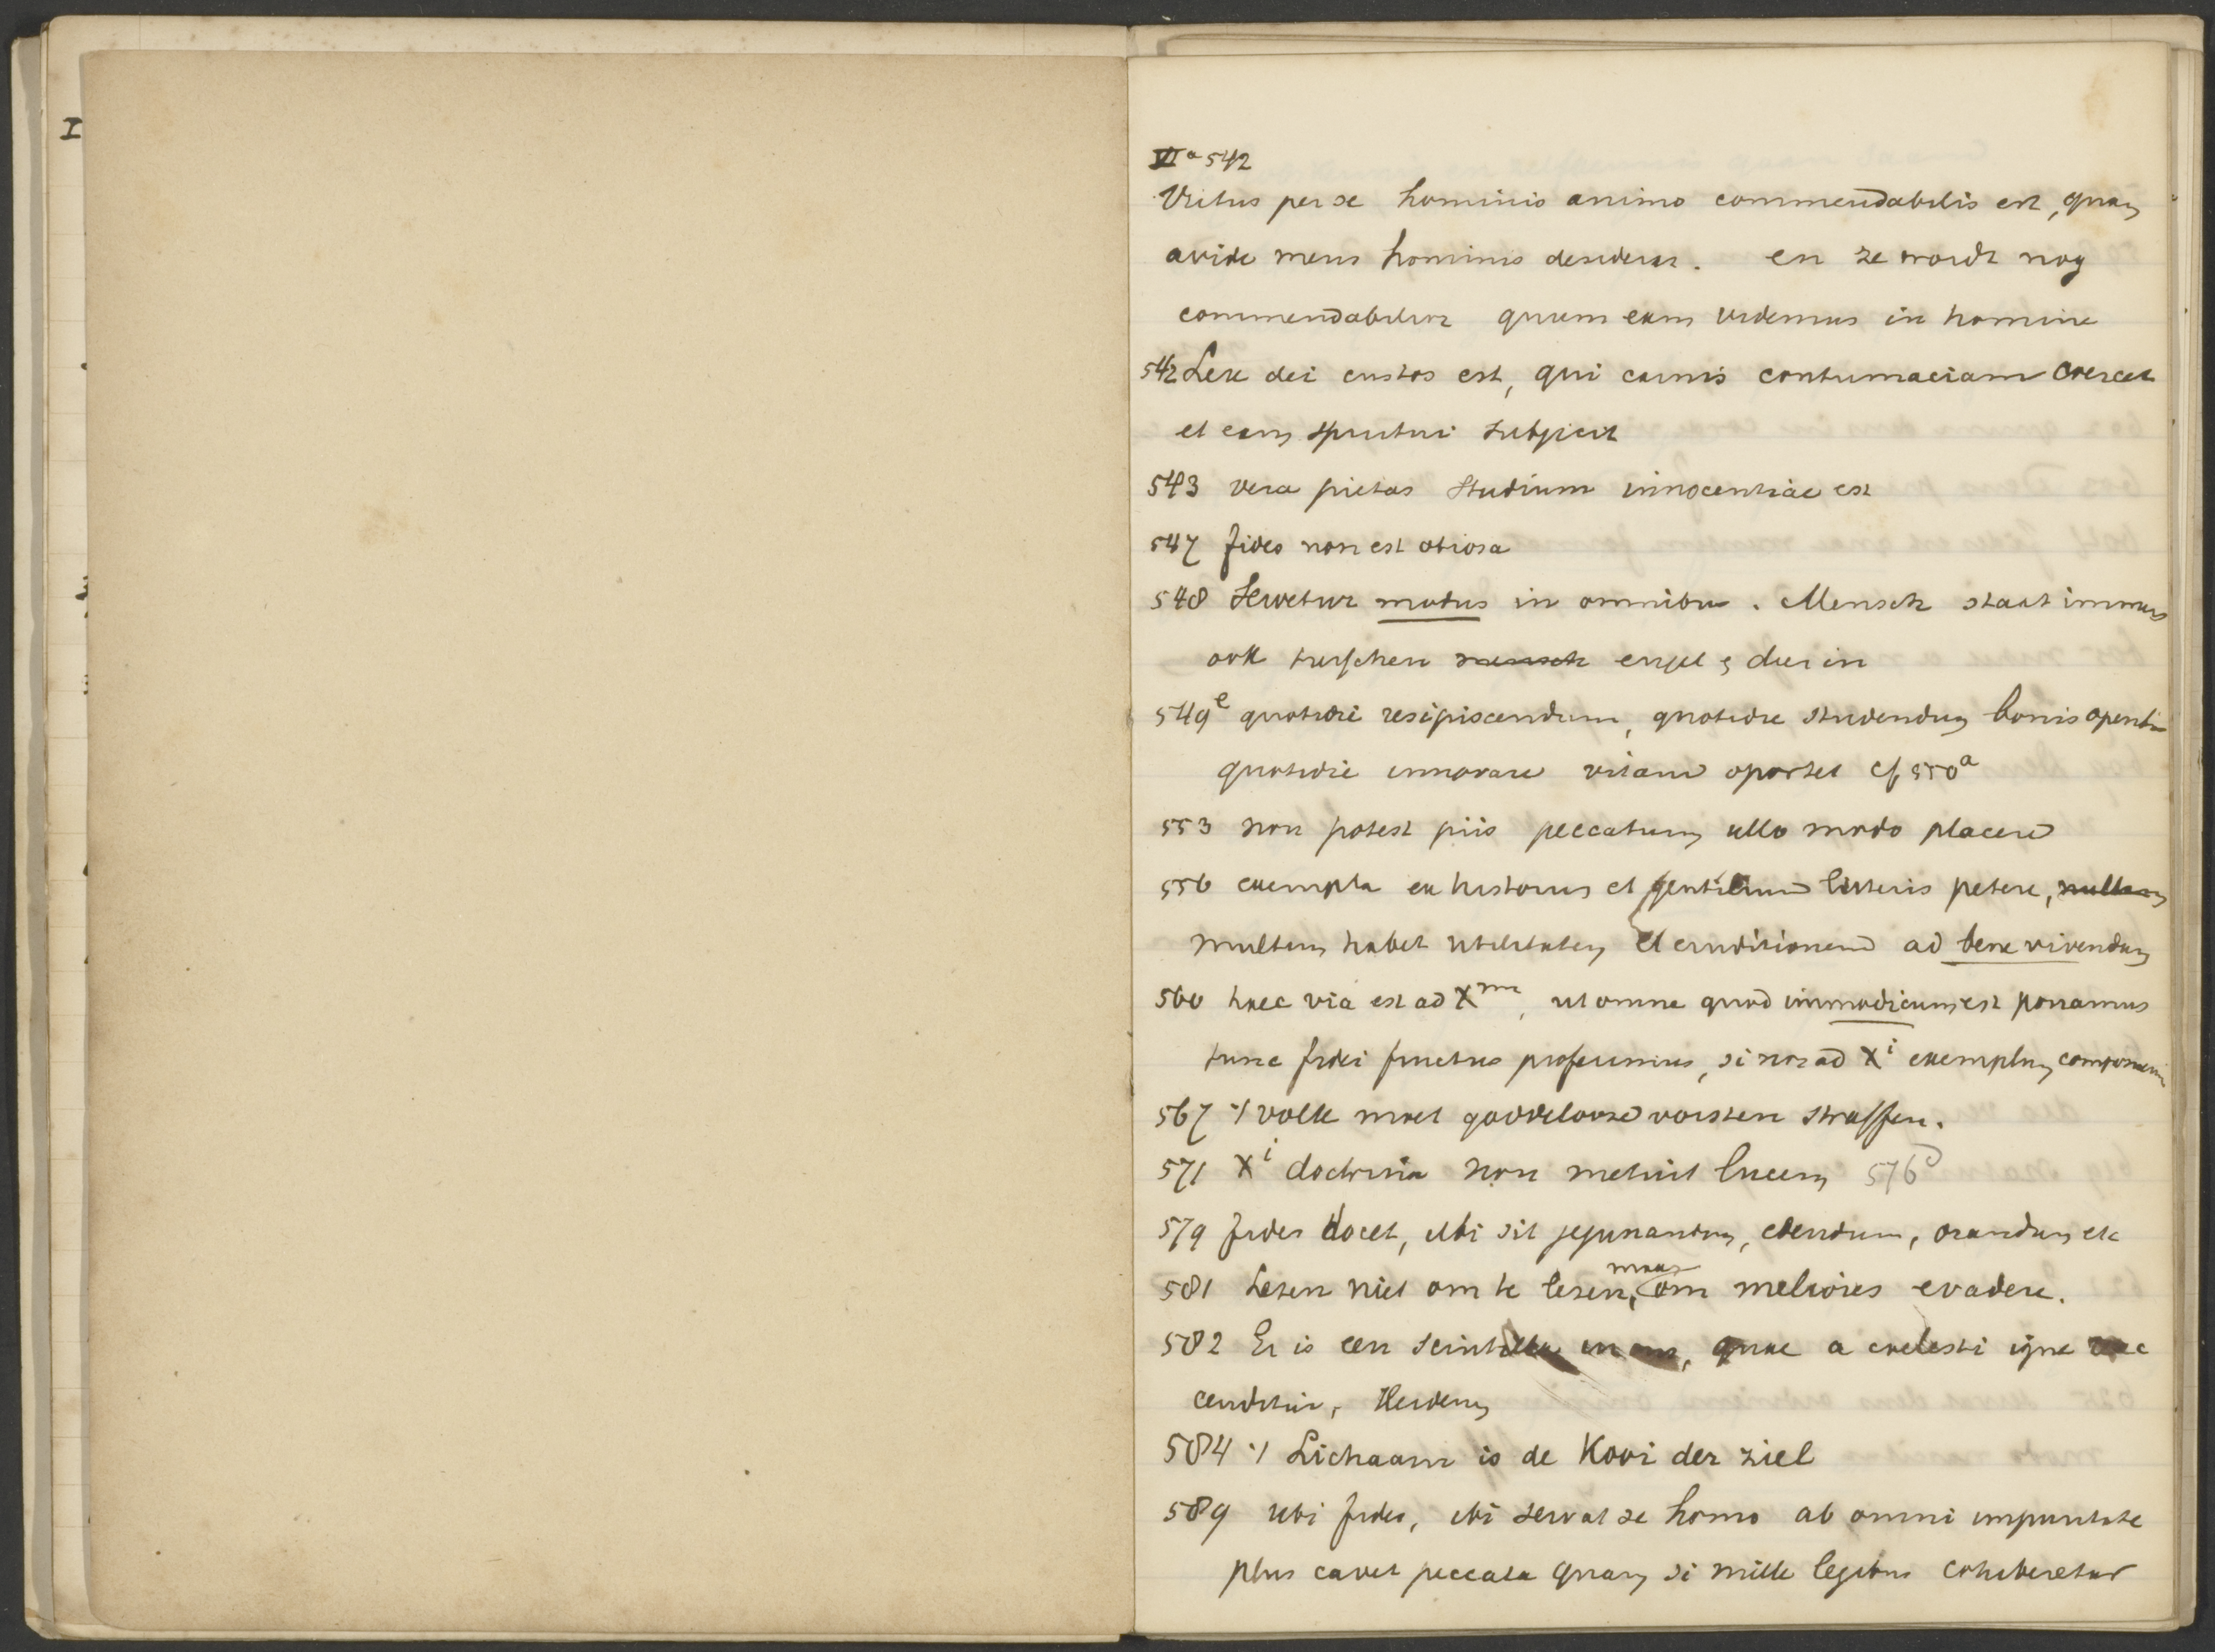 I
VI a 542
Virtus per se hominis animo commendabilis est, quam
avide mens hominis desiderat. en ze wordt nog
commendabilior quum eam videmus in homine
542 Lex dei custos est, qui carnis contumaciam coercet
et eam spiritui subjicit
543 vera pietas studium innocentiae est
547 fides non est otiosa
548 Servetur modus in omnibus. Mensch staat immers
ook tusschen mensch engel & dier in
549 e quotidie resipiscendum, quotidie studendum bonis operibus
quotidie innovare vitam oportet cf 550 a
553 non potest piis peccatum ullo modo placere
556 exempla ex historiis et gentilium litteris petere, nullam
multum habet utilitatem et eruditionem ad bene vivendum
560 haec via est ad X m, ut omne quod immodicum est ponamus
tunc fidei fructus proferimus, si nos ad X i exemplum componamus
567 't volk moet goddelooze vorsten straffen.
571 X i doctrina non metuit lucem 576 d
579 fides docet, ubi sit jejunandum, edendum, orandum etc
581 Lezen niet om te lezen, maar om meliores evadere.
582 Er is een scintilla in ons, quae a coelesti igne acc
cenditur, Heidenen
584 't Lichaam is de Kooi der ziel
589 ubi fides, ibi servat se homo ab omni impuritate
plus cavet peccata quam si mille legibus cohiberetur